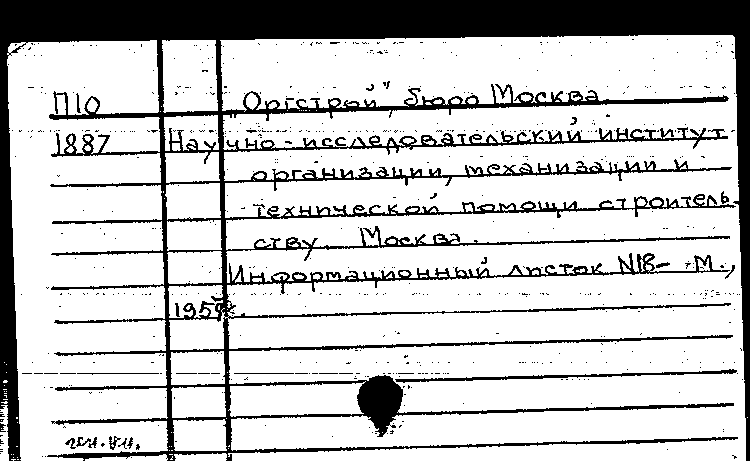 П10 „Оргстрой", бюро Москва.
1887 Научно-исследовательский институт
организации, механизации и
технической помощи строитель-
ству. Москва.
Информационный листок N18- -М.,